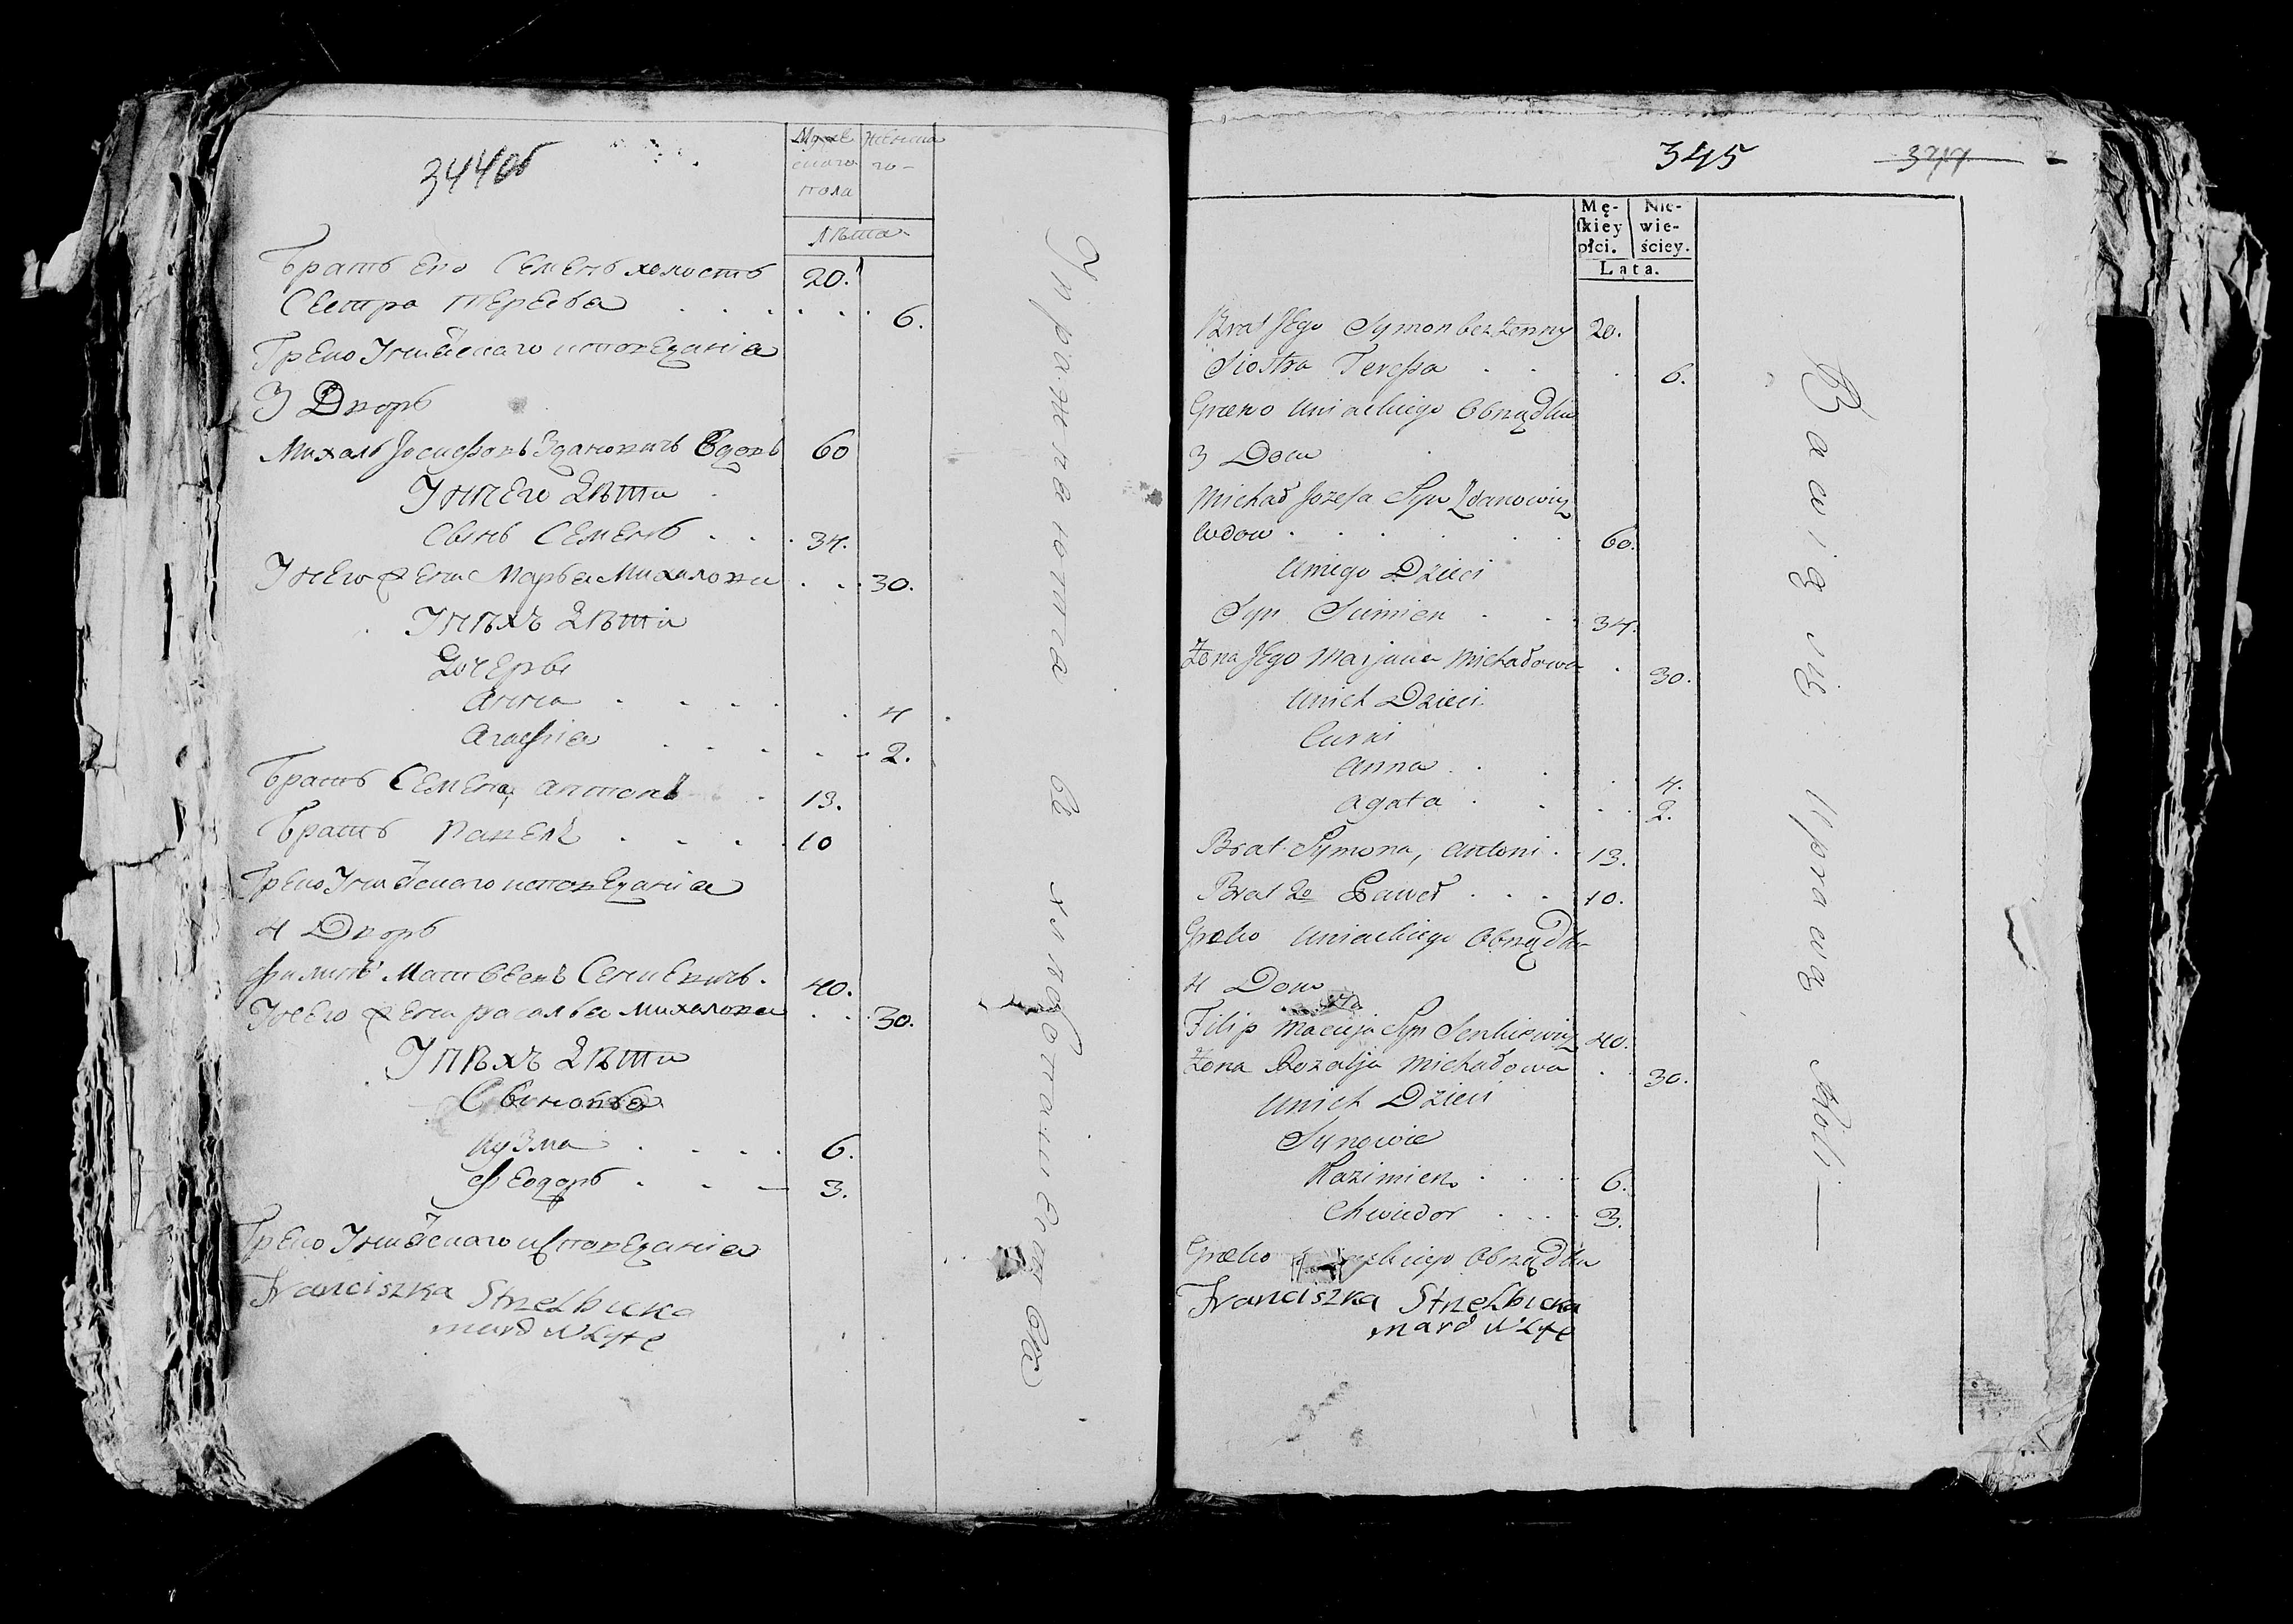 344об
Мужескаго пола
Женска го
Лѣта
Братъ Его Семенъ холостъ 20.
Сестра Тереса 6.
Греко Униацкаго исповеданиа
3 Дворъ
Михалъ Иосифовъ Здановичъ Вдовъ 60
У него Дѣти
Сынъ Семенъ 34.
У него жена Марья Михалова 30.
У нихъ Дѣти
Дочеры
Анна 4
Агафиа 2.
Братъ Семена, Антонъ 13.
Братъ Павелъ 10
Греко Униацкаго исповеданиа
4 Дворъ
Филипъ Матвеевъ Сенкевичъ. 40.
У него жена Розалья Михалова 30.
У нихъ Дѣти
Сыновья
Кузма 6.
Феодоръ 3.
Греко Униацкаго исповеданиа
Franciszka Strzelbicka
Упражняются въ
345
377
Mę-
ſkiey
płci.
Nie-
wie-
ściey.
Lata.
Brat Jego Symon bezżenny 20.
Siostra Teressa 6.
Greko Uniackiego Obrządku
3 Dom
Michał Jozefa Syn Zdanowicz
Wdow 60.
U niego Dzieci
Syn Simien 34.
Żona Jego Marjana Michałowa 30.
U nich Dzieci
Curki
Anna 4.
Agata 2.
Brat Symona, Antoni 13.
Brat 2o Paweł 10.
Greko Uniackiego Obrządku
4 Dom
Filip Macieja Syn Senkiewicz 40.
Żona Rozalja Michałowa 30.
U nich Dzieci
Synowie
Kazimierz 6.
Chwiedor 3.
Greko Obrządku
Franciszka Strzelbicka
Bawią się Uprawą Roli